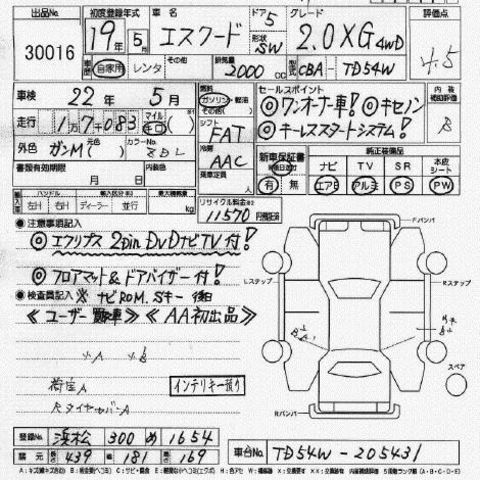 出品No. 初度登録年式 車名 ドア 5 グレード 評価点
30016 19年 5月 エスクード 形状 SW 2.0XG 4WD 4.5
車歴 自家用 レンタ その他 排気量 2000cc 型式 CBA-TD54W
車検 22年 5月 燃料 ガソリン 軽油 その他( ) セールスポイント 内装 B
◎ワンオーナー車! ◎キセノン
走行 1万7千083 マイル キロ シフト FAT ◎キーレススタートシステム!
外色 ガンM カラーNo. ZDL 冷房 AAC 新車保証書 純正装備品
書類有効期限 月 日 内装色 乗車定員 人 有 無 ナビ TV SR 本皮シート
エアB アルミ PS PW
ハンドル 左H 右H ディーラー 並行 最大積載量 kg リサイクル料金 11570円
●注意事項記入
◎エクリプス 2Din DVDナビTV付!
◎フロアマット&ドアバイザー付!
●検査員記入 ※ナビROM.Sキー 後日
≪ユーザー買取車≫ ≪AA初出品≫
荷室A インテリキー預り
Fバンパ
Lステップ Rステップ
スペア
Rバンパ
登録No. 浜松 300 め 1654
諸元 長さ 439 幅 181 高さ 169 車台No. TD54W-205431